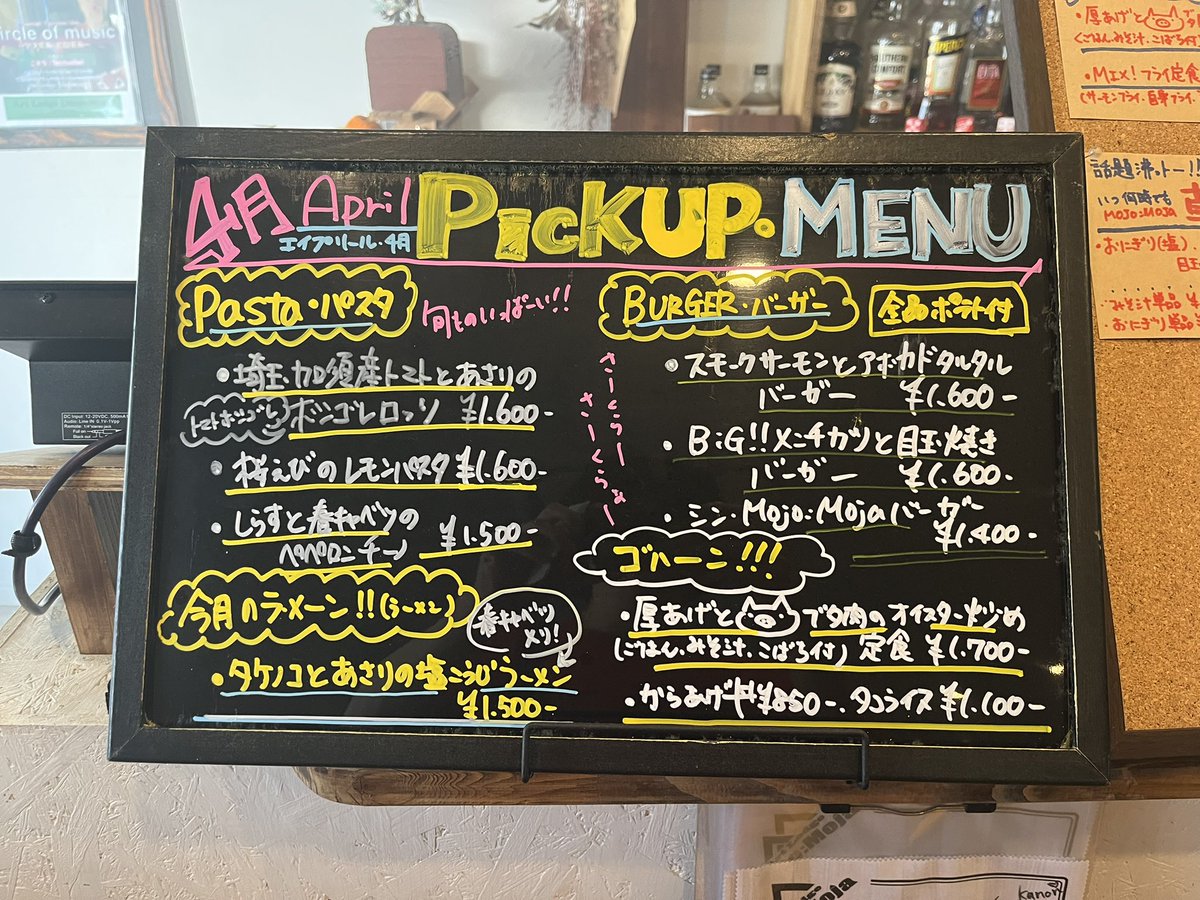 4月 April PicKUP・MENU
エイプリール・4月
Pasta・パスタ
旬ものいっぱーい!!
・埼玉・加須産トマトとあさりの
ボンゴレロッソ ¥1.600-
・桜えびのレモンパスタ ¥1.600-
・しらすと春キャベツの
ペペロンチーノ ¥1.500-
今月のラメーン!!(ラーメン)
春キャベツ
メリ!
・タケノコとあさりの塩こうじラーメン
¥1.500-
BURGER・バーガー
全品ポテト付
さーくらー
さーくらぁー
・スモークサーモンとアボカドタルタル
バーガー ¥1.600-
・BiG!!メンチカツと目玉焼き
バーガー ¥1.600-
・シン・Mojo:Mojaバーガー
¥1.400-
ゴハーン!!!
・厚あげとブタ肉のオイスター炒め
(ごはん、みそ汁、こばち付) 定食 ¥1.700-
・からあげ丼¥850-、タコライス¥1.100-
ircle of music
DC Input: 12-20VDC, 500mA
Audio: Line IN 0.1V-1Vpp
・厚あげとブタ
(ごはん、みそ汁、こばち付)
・MIX!フライ定食
話題沸っトー!!
いつ何時でも
MOJO:MOJA
・おにぎり(塩)
目玉
みそ汁単品
・おにぎり単品
Kanon